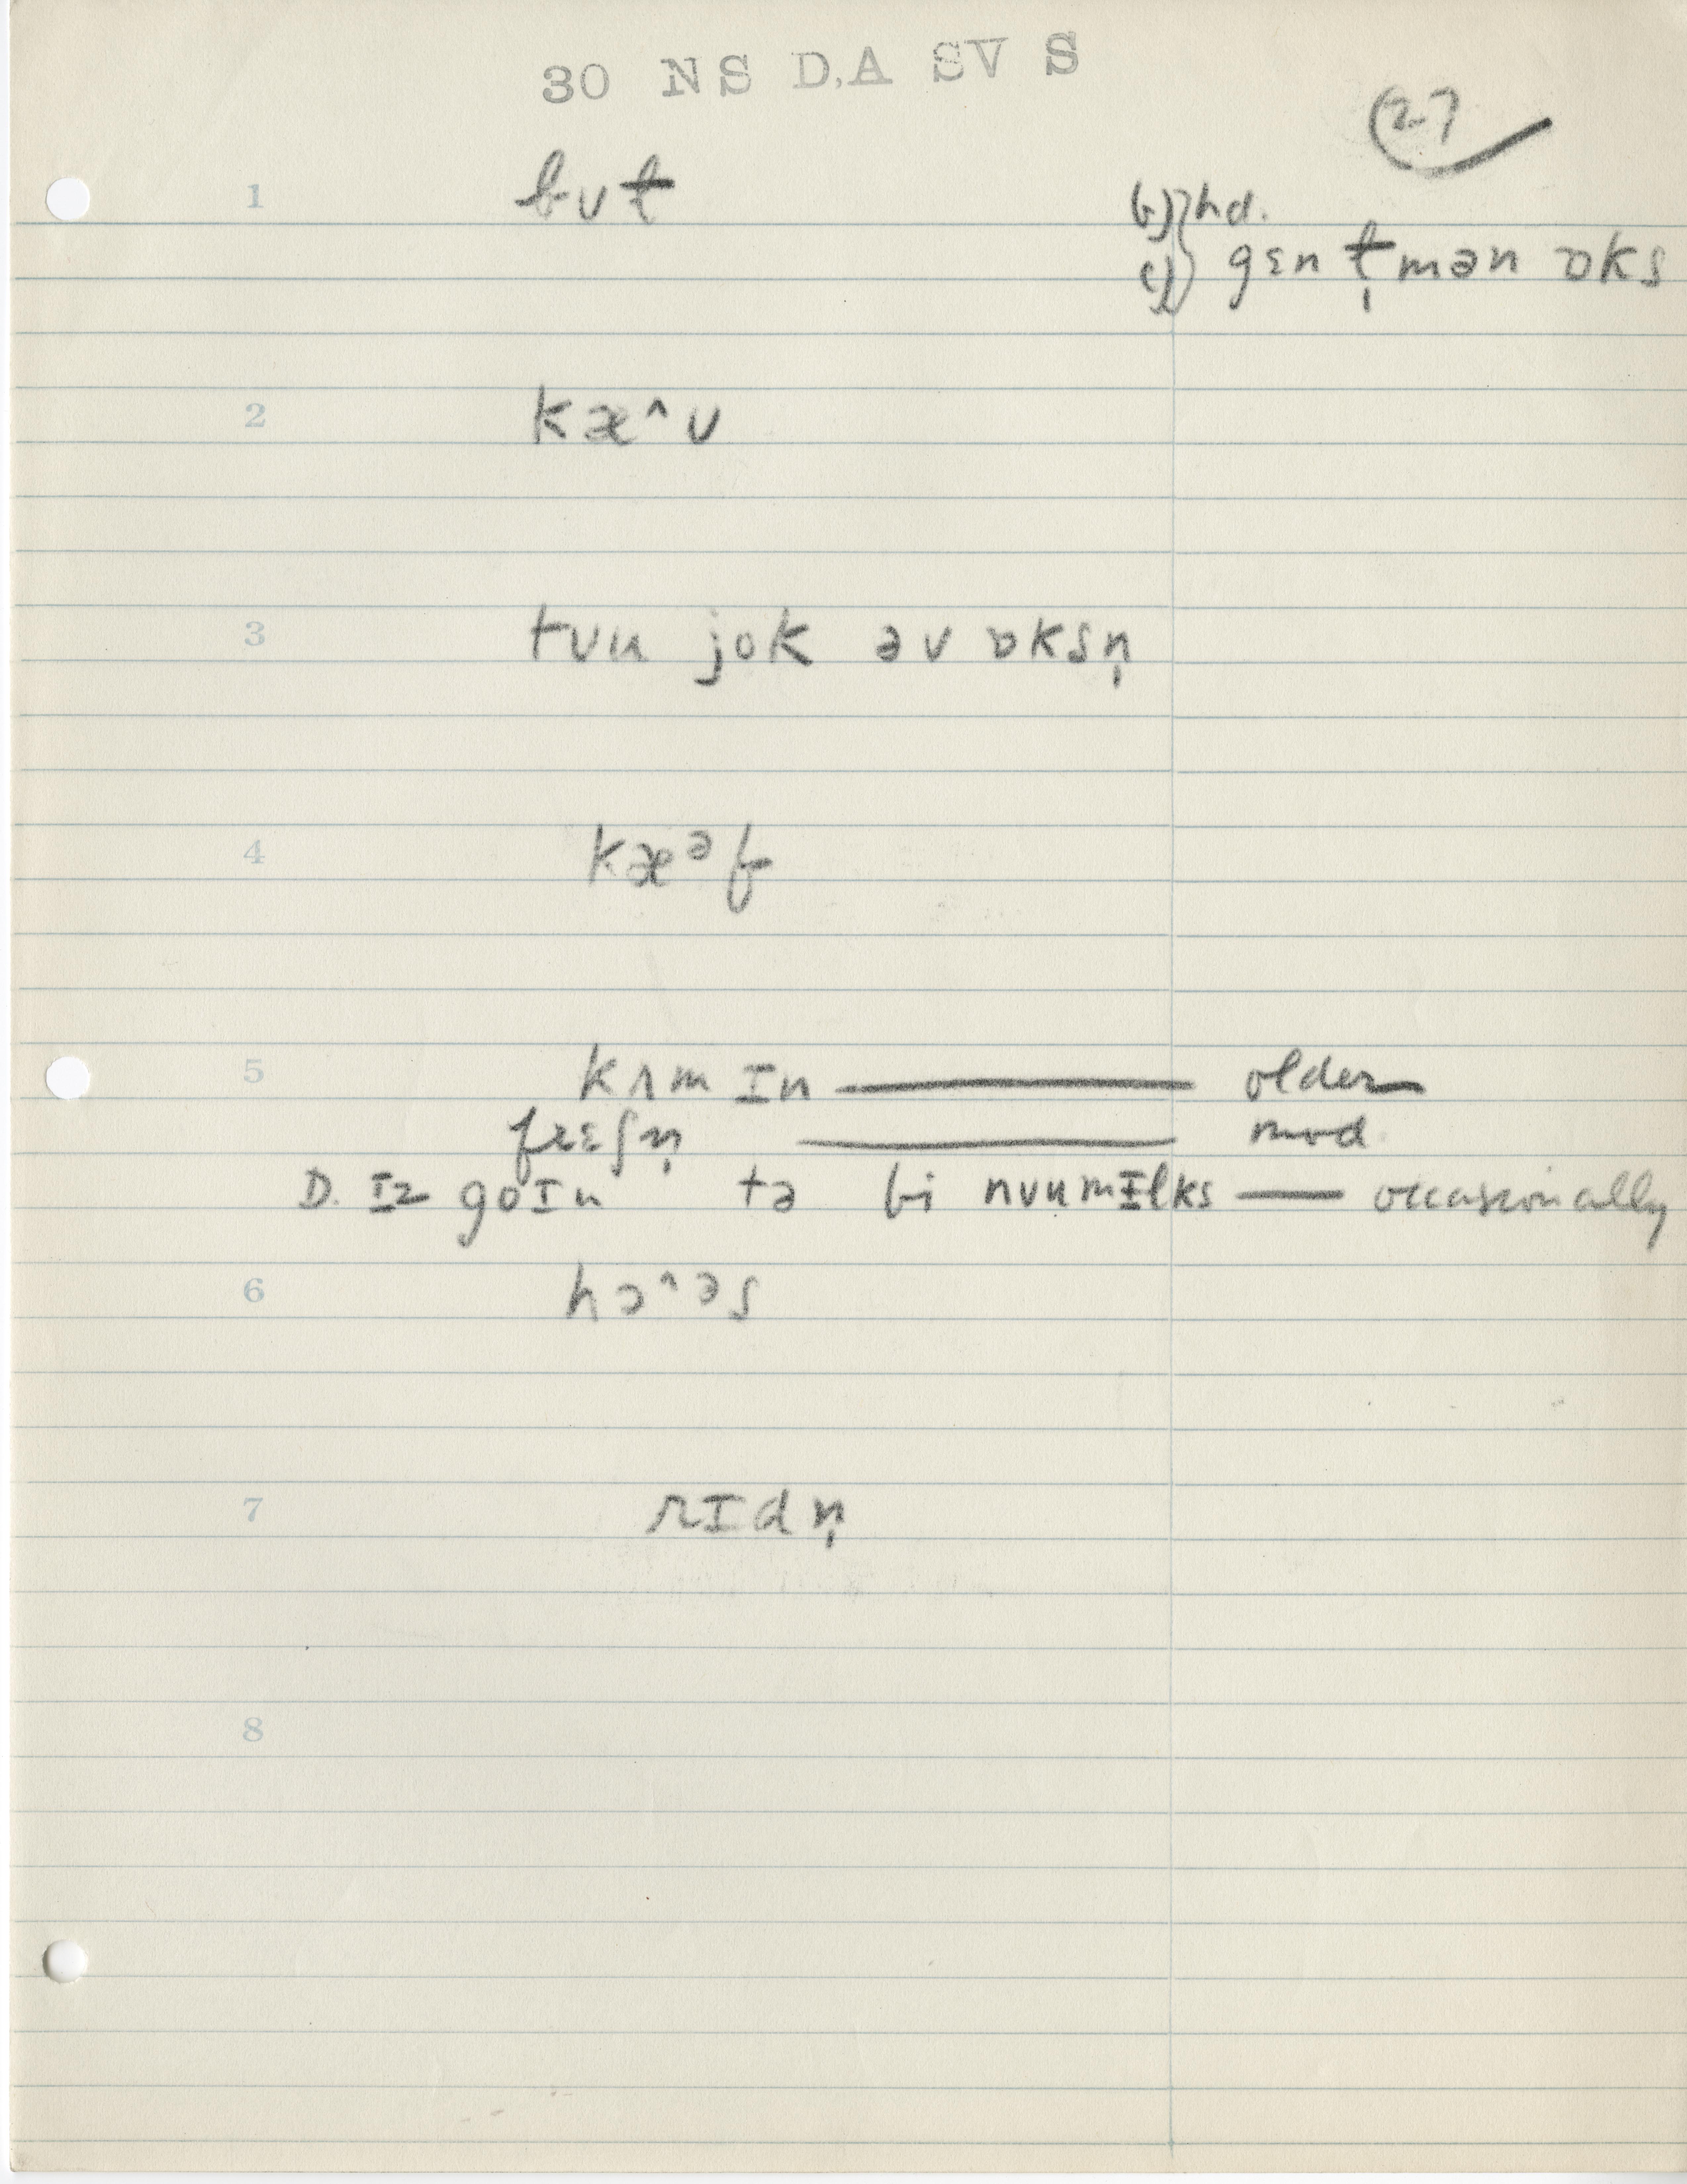 30 NS D,A SV S
27
1 bʊɫ
b) hd.
c) gɛnɫ̩mən ɒks
2 kæ^ʊ
3 tʊu jok əv ɒksn̩
4 kæᵊf
5 kʌm ɪn — older
frɛʃn̩ — mod.
D. ɪz goɪn tə bi nʊumɪlks — occasionally
6 hɔ^ᵊs
7 rɪdn̩
8